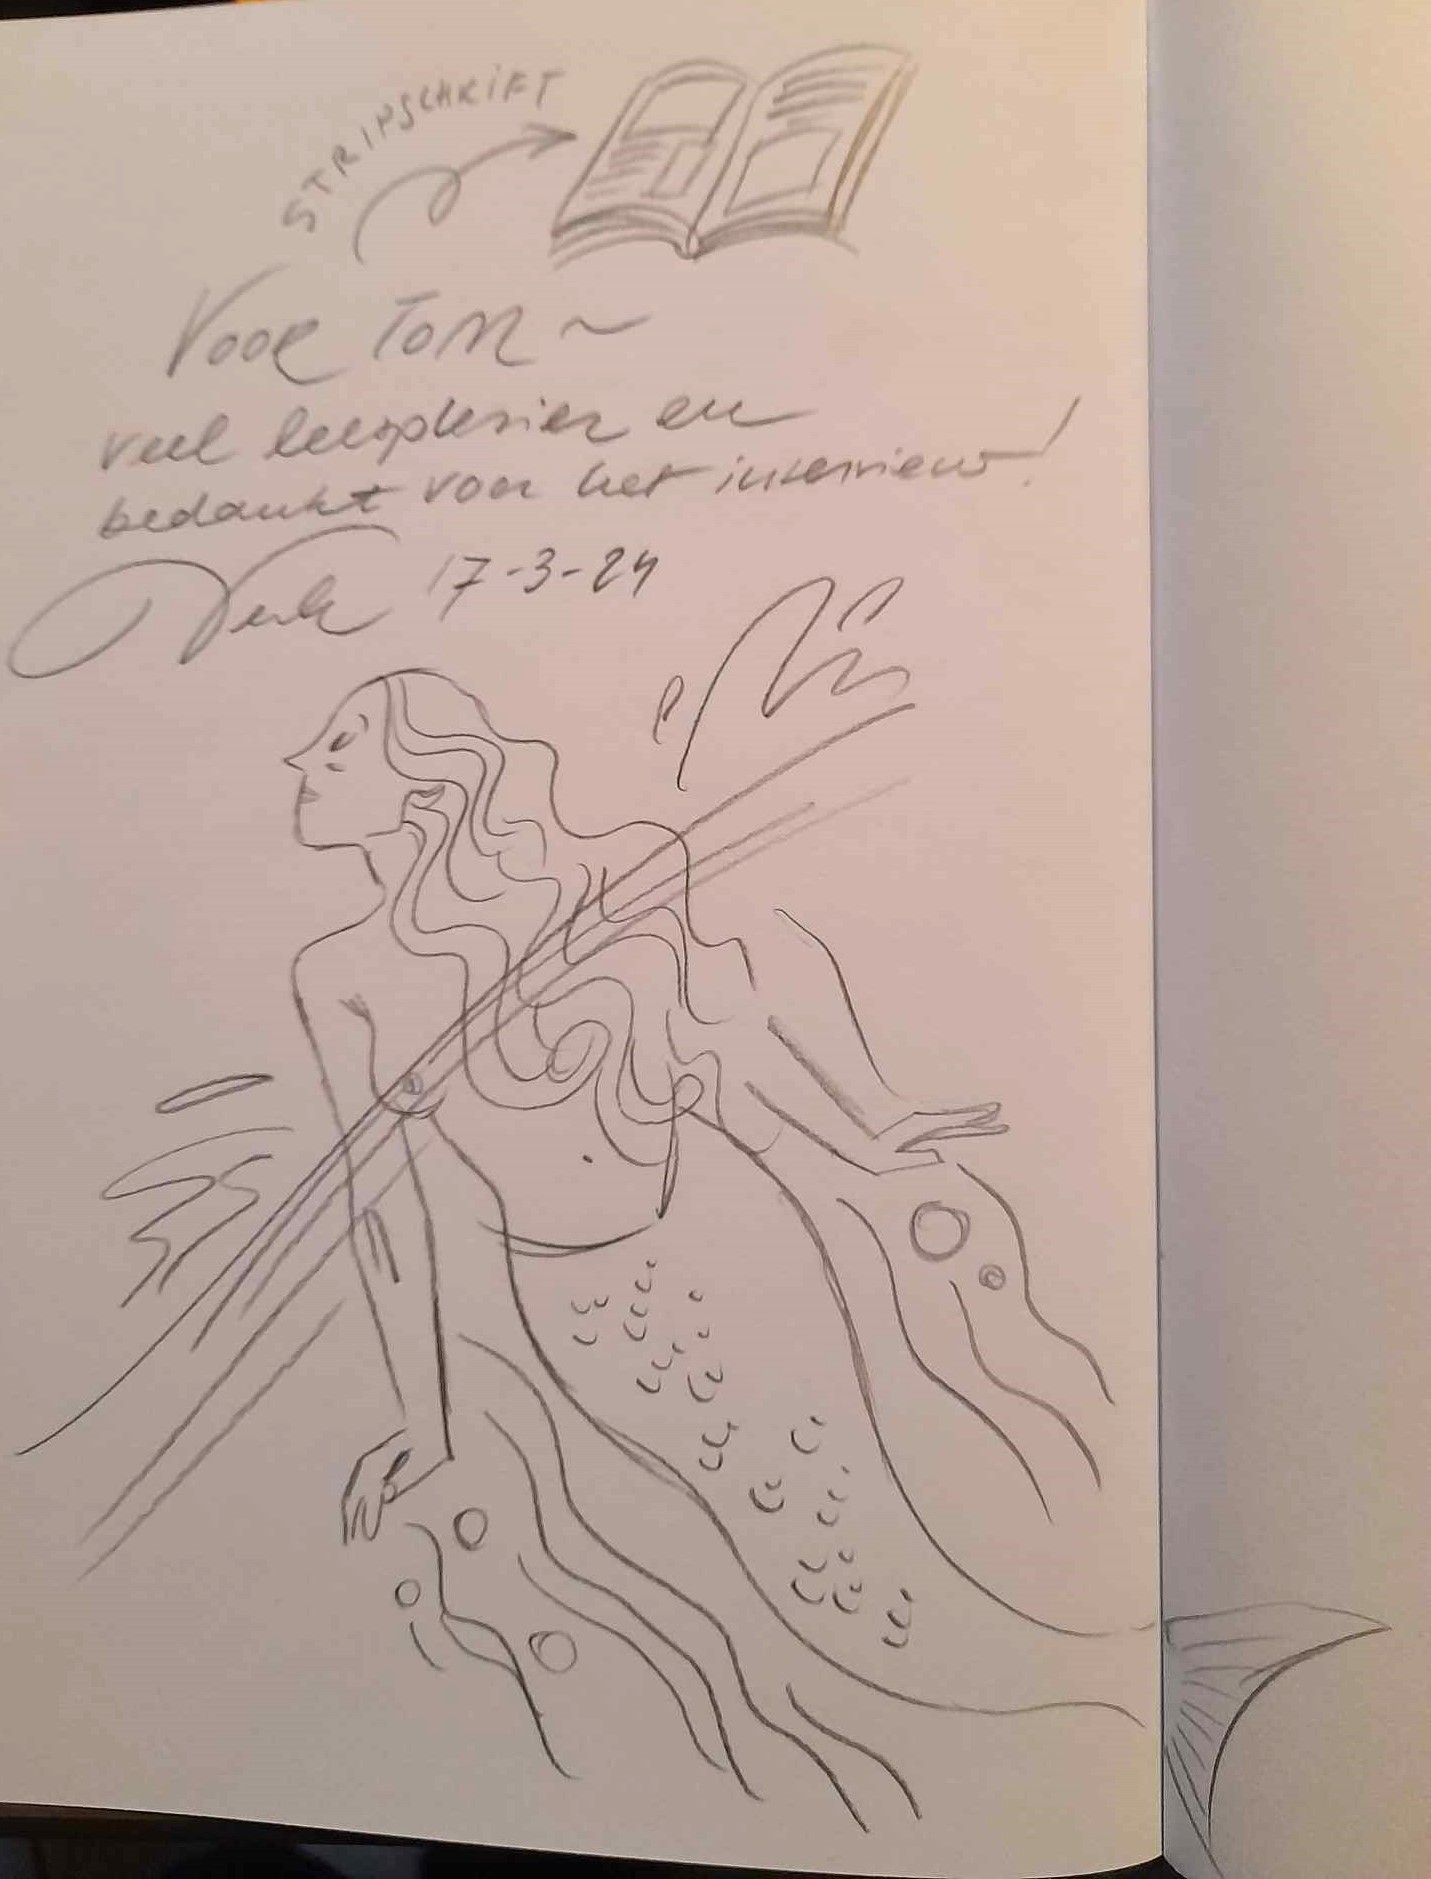 STRIPSCHRIFT
Voor Tom ~
veel leesplezier en
bedankt voor het interview!
17-3-24